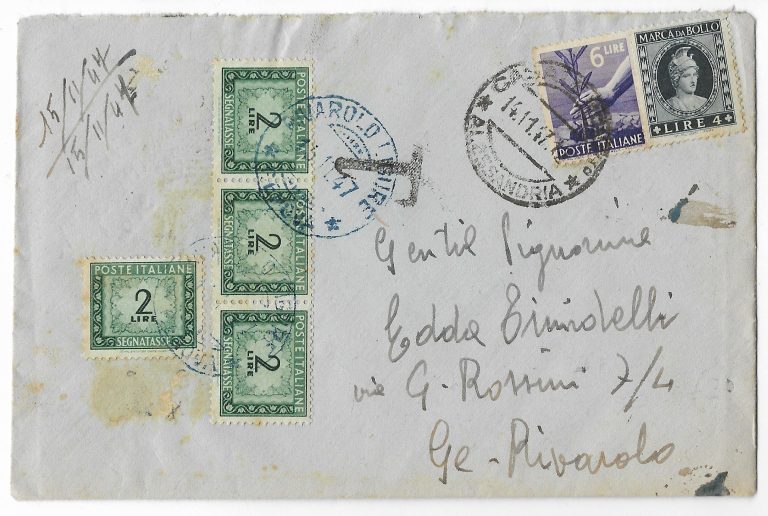 15/11/47
15/11/47
POSTE ITALIANE
2
LIRE
SEGNATASSE
POSTE ITALIANE
2
LIRE
SEGNATASSE
POSTE ITALIANE
2
LIRE
SEGNATASSE
POSTE ITALIANE
2
LIRE
SEGNATASSE
AROLO LIGURE
47
T
14.11.47
ALESSANDRIA
6 LIRE
POSTE ITALIANE
MARCA DA BOLLO
LIRE 4
Gentil Signorina
Edda
via G. Rossini 7/4
Ge-Rivarolo